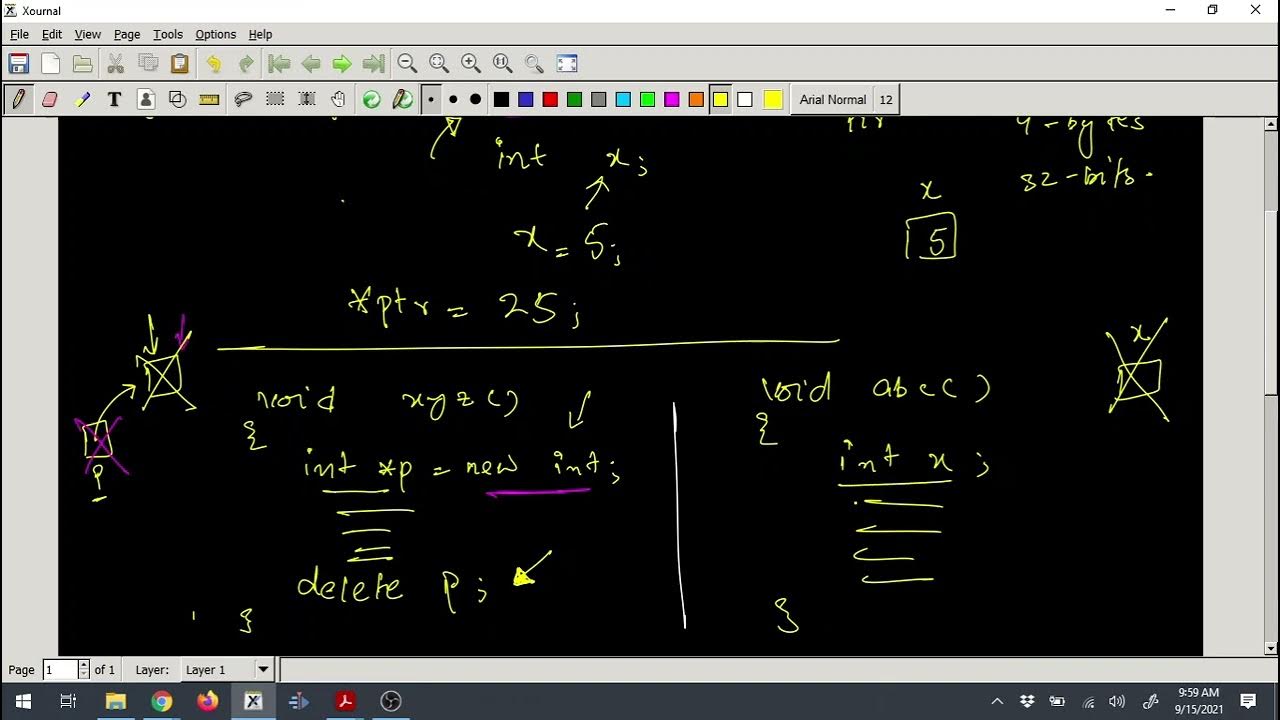 Xournal
File Edit View Page Tools Options Help
Arial Normal 12
4-bytes
int x;
32-bits.
x
x = 5;
5
*ptr = 25;
x
void xyz()
void abc()
{
{
int *p = new int;
int x;
p
delete p;
}
}
Page 1 of 1 Layer: Layer 1
9:59 AM
9/15/2021